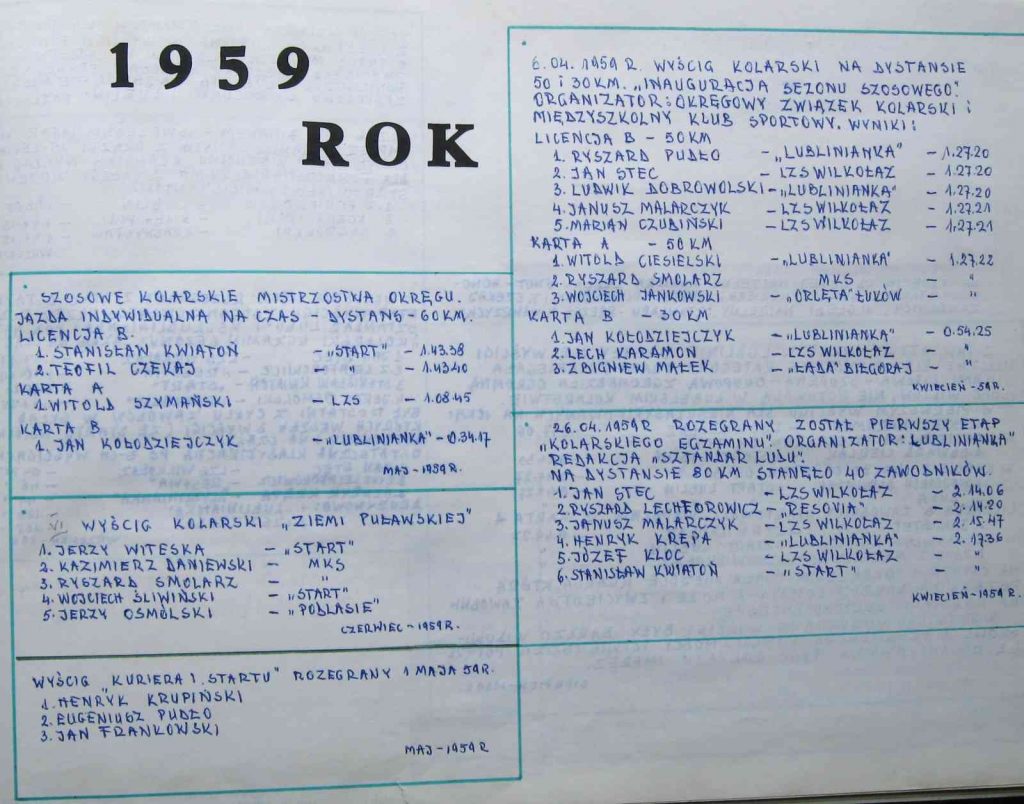 1959
ROK
6.04.1959 R. WYŚCIG KOLARSKI NA DYSTANSIE
50 i 30 KM. „INAUGURACJA SEZONU SZOSOWEGO".
ORGANIZATOR: OKRĘGOWY ZWIĄZEK KOLARSKI i
MIĘDZYSZKOLNY KLUB SPORTOWY. WYNIKI:
LICENCJA B - 50 KM
1. RYSZARD PUDŁO - „LUBLINIANKA" - 1.27.20
2. JAN STEC - LZS WILKOŁAZ - 1.27.20
3. LUDWIK DOBROWOLSKI - „LUBLINIANKA" - 1.27.20
4. JANUSZ MALARCZYK - LZS WILKOŁAZ - 1.27.21
5. MARIAN CZUBIŃSKI - LZS WILKOŁAZ - 1.27.21
KARTA A - 50 KM
1. WITOLD CIESIELSKI - „LUBLINIANKA" - 1.27.22
2. RYSZARD SMOLARZ MKS - "
3. WOJCIECH JANKOWSKI - „ORLĘTA" ŁUKÓW - "
KARTA B - 30 KM
1. JAN KOŁODZIEJCZYK - „LUBLINIANKA" - 0.54.25
2. LECH KARAMON - LZS WILKOŁAZ - "
3. ZBIGNIEW MAŁEK - „ŁADA" BIŁGORAJ - "
KWIECIEŃ - 59R.
SZOSOWE KOLARSKIE MISTRZOSTWA OKRĘGU.
JAZDA INDYWIDUALNA NA CZAS - DYSTANS - 60 KM.
LICENCJA B.
1. STANISŁAW KWIATOŃ - „START" - 1.43.38
2. TEOFIL CZEKAJ - " - 1.43.40
KARTA A
1. WITOLD SZYMAŃSKI - LZS - 1.08.45
KARTA B
1. JAN KOŁODZIEJCZYK - „LUBLINIANKA" - 0.34.17
MAJ - 1959R.
26.04.1959R ROZEGRANY ZOSTAŁ PIERWSZY ETAP
„KOLARSKIEGO EGZAMINU". ORGANIZATOR: LUBLINIANKA"
REDAKCJA „SZTANDAR LUDU".
NA DYSTANSIE 80 KM STANĘŁO 40 ZAWODNIKÓW.
1. JAN STEC - LZS WILKOŁAZ - 2.14.06
2. RYSZARD LECHFOROWICZ - „RESOVIA" - 2.14.20
3. JANUSZ MALARCZYK - LZS WILKOŁAZ - 2.15.47
4. HENRYK KRĘPA - „LUBLINIANKA" - 2.17.36
5. JÓZEF KLOC - LZS WILKOŁAZ - "
6. STANISŁAW KWIATOŃ - „START" - "
KWIECIEŃ - 1959 R.
VI WYŚCIG KOLARSKI „ZIEMI PUŁAWSKIEJ"
1. JERZY WITESKA - „START"
2. KAZIMIERZ DANIEWSKI - MKS
3. RYSZARD SMOLARZ - "
4. WOJCIECH ŚLIWIŃSKI - „START"
5. JERZY OSMÓLSKI - „PODLASIE"
CZERWIEC - 1959R.
WYŚCIG „KURIERA I STARTU" ROZEGRANY 1 MAJA 59R.
1. HENRYK KRUPIŃSKI
2. EUGENIUSZ PUDŁO
3. JAN FRANKOWSKI
MAJ - 1959 R